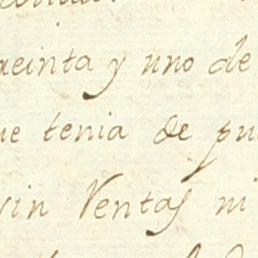 reinta y uno de
ue tenia de pu
vin Ventas ni